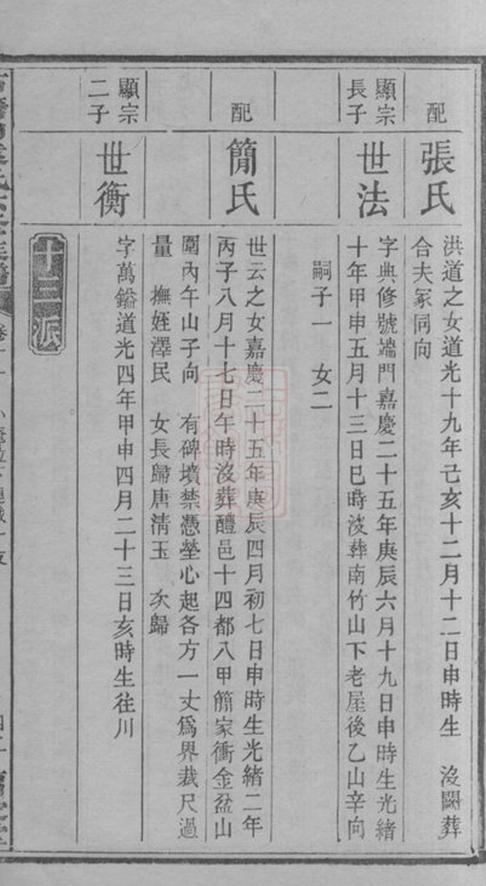 配
張氏
洪道之女道光十九年己亥十二月十二日申時生 沒闕葬
合夫冢同向
顯宗
長子
世法
字典修號端門嘉慶二十五年庚辰六月十九日申時生光緒
十年甲申五月十三日巳時沒葬南竹山下老屋後乙山辛向
嗣子一 女二
配
簡氏
世云之女嘉慶二十五年庚辰四月初七日申時生光緒二年
丙子八月十七日午時沒葬醴邑十四都八甲簡家衝金盆山
圍內午山子向 有碑墳禁憑塋心起各方一丈為界裁尺過
量 撫姪澤民 女長歸唐淸玉 次歸
顯宗
二子
世衡
字萬鎰道光四年甲申四月二十三日亥時生往川
十三派